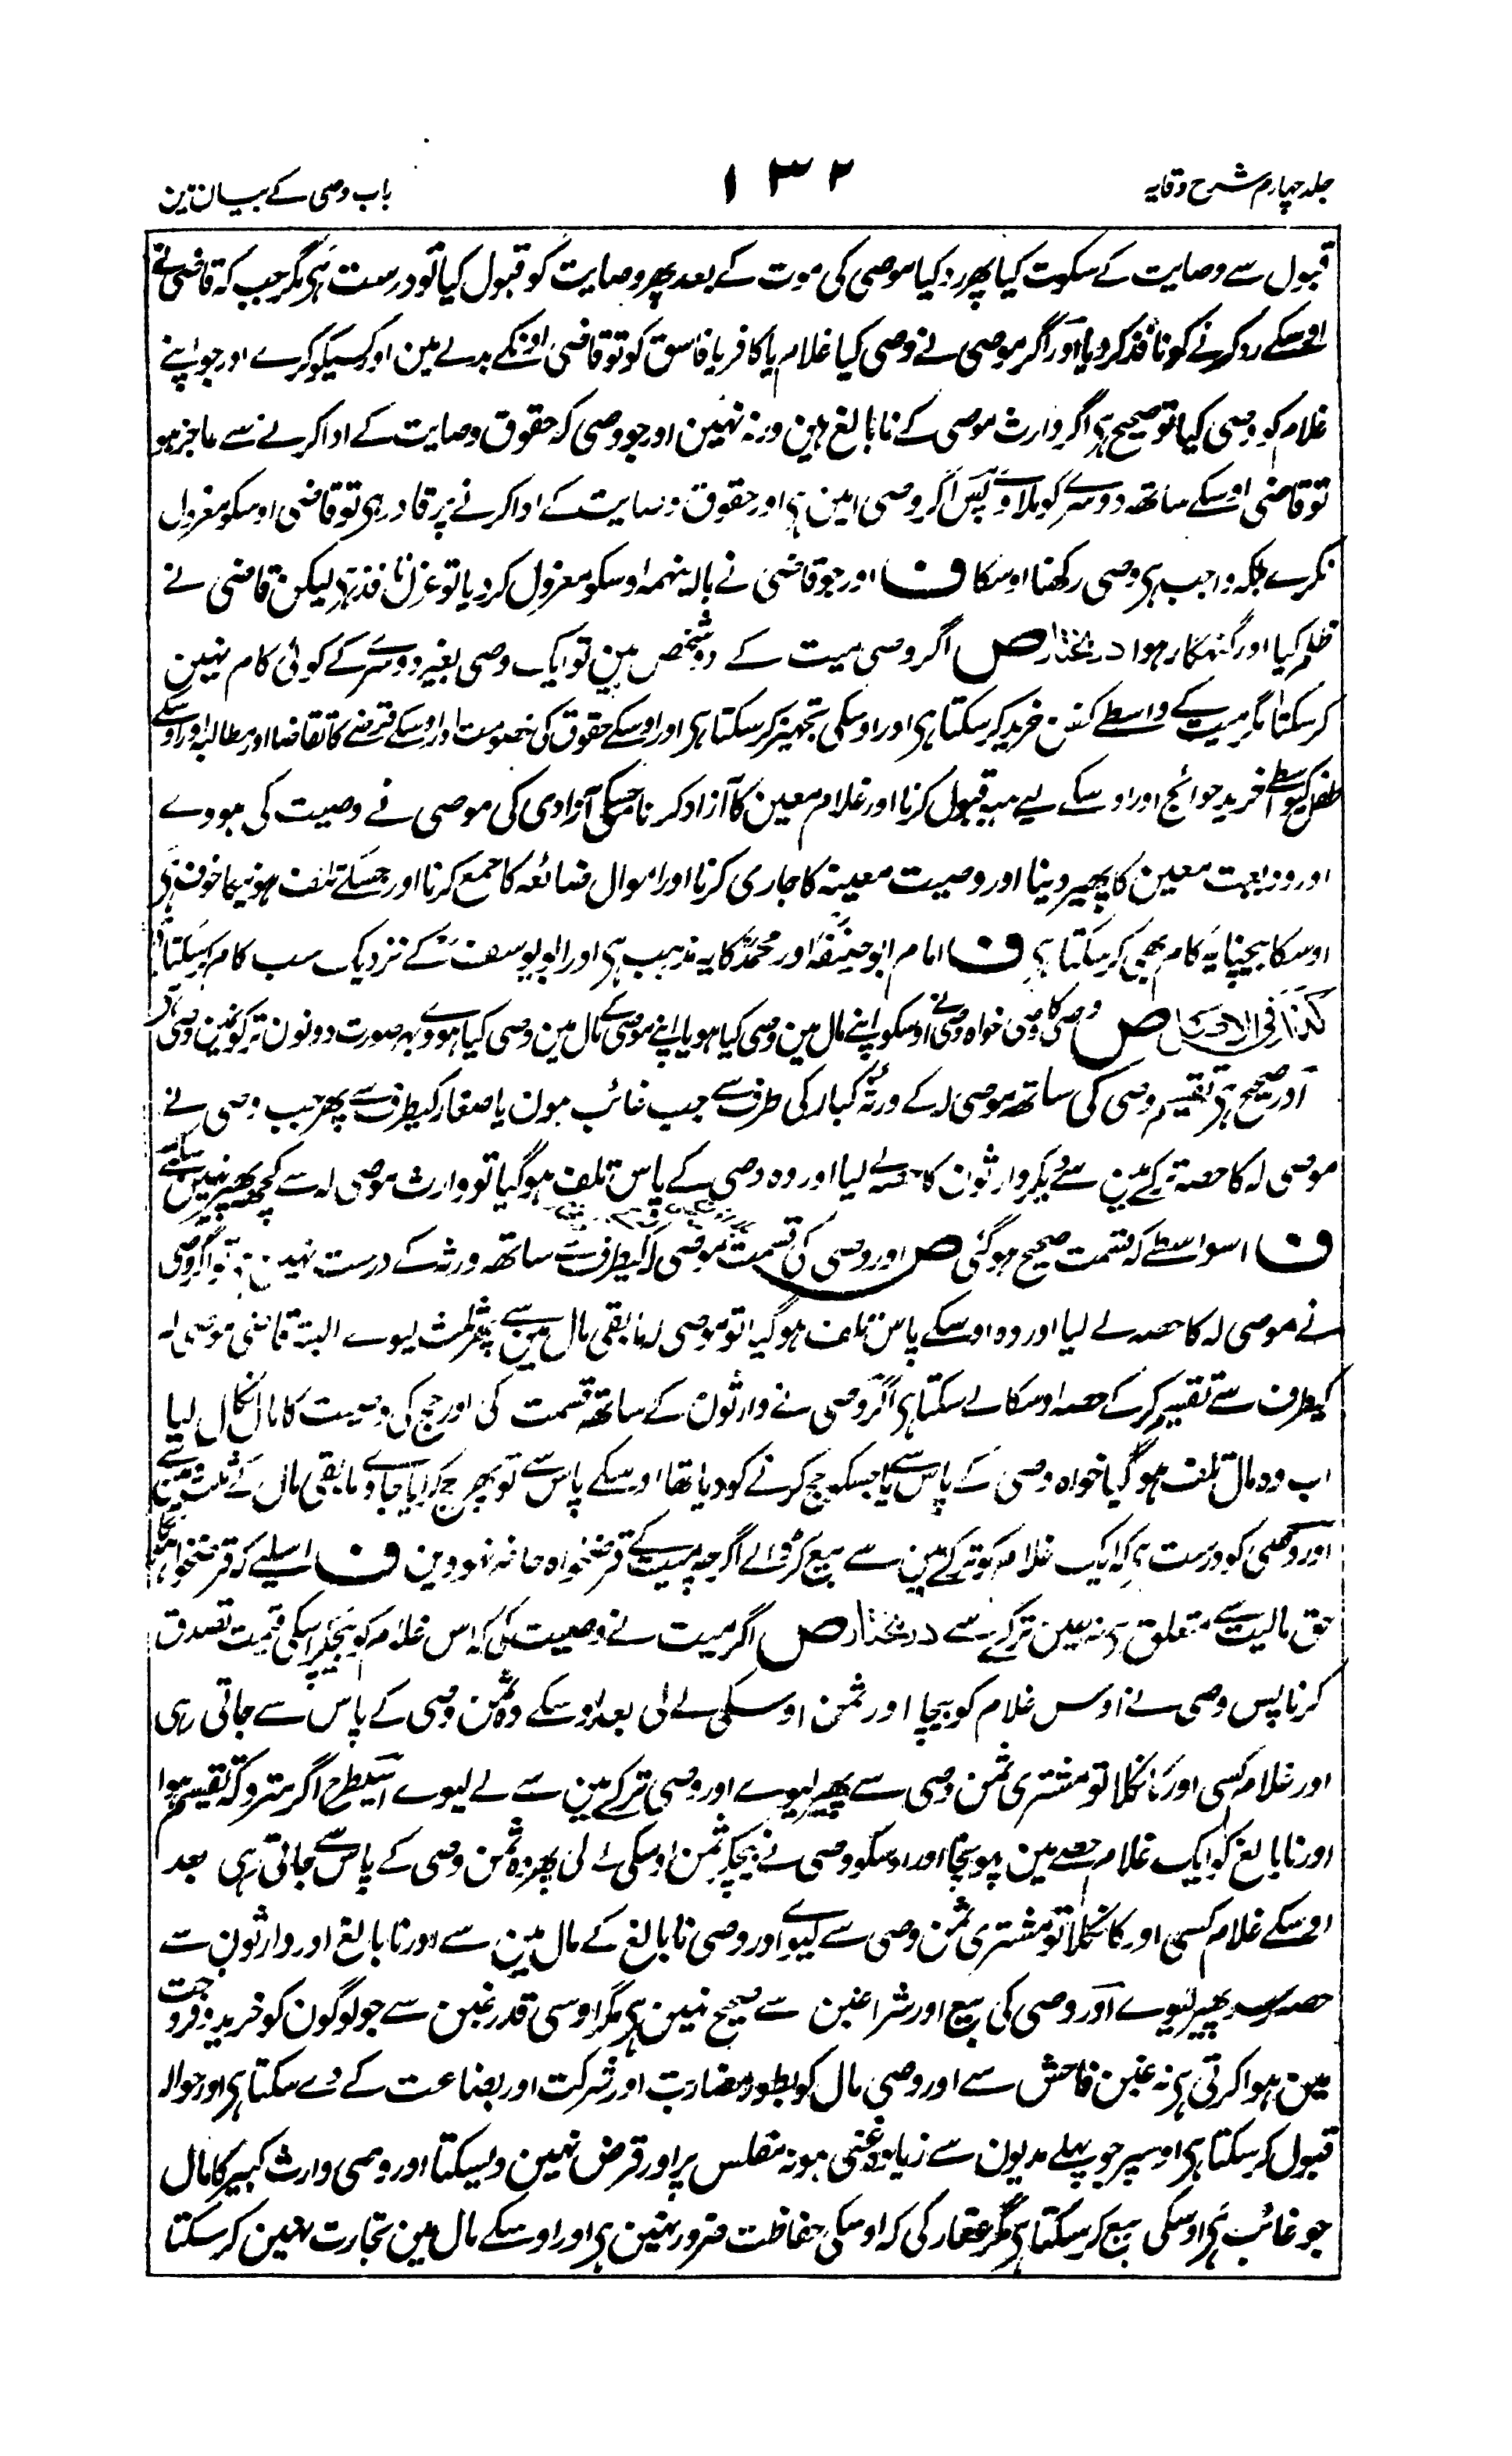 جلد چہارم شرح وقایہ
۱۳۲
باب وصی کے بیان مین
قبول سے وصایت کے سکوت کیا پھر رد کیا موصی کی موت کے بعد پھر وصایت کو قبول کیا تو درست ہی مگر جب کہ قاضی نے
اوسکے رد کرنے کو نافذ کر دیا اور اگر موصی نے وصی کیا غلام یا کافر یا فاسق کو تو قاضی اونکے بدلے مین اور کسیکو کرے اور جو اپنے
غلام کو وصی کیا تو صحیح ہی اگر وارث موصی کے نابالغ ہین ورنہ نہین اور جو وصی کہ حقوق وصایت کے ادا کرنے سے عاجز ہو
تو قاضی اوسکے ساتھ دوسرے کو ملاوے پس اگر وصی امین ہی اور حقوق وصایت کے ادا کرنے پر قادر ہی تو قاضی اوسکو معزول
نکرے بلکہ واجب ہی وصی رکھنا اوسکا ف اور جو قاضی نے بااینہمہ اوسکو معزول کر دیا تو عزل نافذ ہی لیکن قاضی نے
ظلم کیا اور گنہگار ہوا درمختار ص اگر وصی میت کے دو شخص ہین تو ایک وصی بغیر دوسرے کے کوئی کام نہین
کرسکتا مگر میت کے واسطے کفن خرید کر سکتا ہی اور اوسکی تجہیز کر سکتا ہی اور اوسکے حقوق کی خصومت اور اوسکے قرضے کا تقاضا اور مطالبہ اور اوسکے
طفل کیواسطے خرید حوائج اور اوسکے لیے ہبہ قبول کرنا اور غلام معین کا آزاد کرنا جسکی آزادی کی موصی نے وصیت کی ہووے
اور ودیعت معین کا پھیر دینا اور وصیت معینہ کا جاری کرنا اور اموال ضائعہ کا جمع کرنا اور جسکے تلف ہونیکا خوف ہی
اوسکا بیچنا یہ کام بھی کر سکتا ہی ف امام ابو حنیفہ اور محمد کا یہ مذہب ہی اور ابو یوسف کے نزدیک سب کام کرسکتا
ص وصی کا وصی خواہ وصی نے اوسکو اپنے مال مین وصی کیا ہو یا اپنے موصی کے مال مین وصی کیا ہووے بہر صورت دونون ترکونمین وصی
اور صحیح ہی تقسیم وصی کی ساتھ موصی لہ کے ورثہ کبار کی طرف سے جب غائب ہون یا صغار کیطرف سے پھر جب وصی نے
موصی لہ کا حصہ ترکے مین سے دیکر وارثون کا حصہ لے لیا اور وہ وصی کے پاس تلف ہو گیا تو وارث موصی لہ سے کچھ پھیر نہین سکتے
ف اسواسطے کہ قسمت صحیح ہو گئی ص اور وصی کی قسمت موصی لہ کیطرف سے ساتھ ورثہ کے درست نہین تو اگر وصی
نے موصی لہ کا حصہ لے لیا اور وہ اوسکے پاس تلف ہو گیا تو موصی لہ مابقی مال مین سے پھر ثلث لیوے البتہ قاضی موصی لہ
کیطرف سے تقسیم کر کے حصہ اوسکا لے سکتا ہی اگر وصی نے وارثون کے ساتھ قسمت کی اور حج کی وصیت کا مال نکال لیا
اب وہ مال تلف ہو گیا خواہ وصی کے پاس سے یا جسکو حج کرنے کو دیا تھا اوسکے پاس سے تو پھر حج کرایا جاوے مابقی مال کے ثلث مین سے
اور وصی کو درست ہی کہ ایک غلام کو ترکے مین سے بیع کر ڈالے اگرچہ میت کے قرضخواہ حاضر نہووین ف اسلیے کہ قرضخواہ
حق مالیت سے متعلق ہی نہ عین ترکے سے درمختار ص اگر میت نے وصیت کی کہ اس غلام کو بیچکر اسکی قیمت تصدق
کرنا پس وصی نے اوس غلام کو بیچا اور ثمن اوسکی لے لی بعد اوسکے وہ ثمن وصی کے پاس سے جاتی رہی
اور غلام کسی اور کا نکلا تو مشتری ثمن وصی سے پھیر لیوے اور وصی ترکے مین سے لے لیوے اسیطرح اگر متروکہ تقسیم ہوا
اور نابالغ کو ایک غلام حصے مین پہونچا اور اوسکو وصی نے بیچکر ثمن اوسکی لے لی پھر وہ ثمن وصی کے پاس سے جاتی رہی بعد
اوسکے غلام کسی اور کا نکلا تو مشتری ثمن وصی سے لیوے اور وصی نابالغ کے مال مین سے اور نابالغ اور وارثون سے
حصہ رسد پھیر لیوے اور وصی کی بیع اور شرا غبن سے صحیح نہین ہی مگر اوسی قدر غبن سے جو لوگون کو خرید و فروخت
مین ہوا کرتی ہی نہ غبن فاحش سے اور وصی مال کو بطور مضاربت اور شرکت اور بضاعت کے دے سکتا ہی اور حوالہ
قبول کر سکتا ہی اوسپر جو پہلے مدیون سے زیادہ غنی ہو نہ مفلس پر اور قرض نہین دیسکتا اور وصی وارث کبیر کا مال
جو غائب ہی اوسکی بیع کر سکتا ہی مگر عقار کی کہ اوسکی حفاظت ضرور نہین ہی اور اوسکے مال مین تجارت نہین کر سکتا